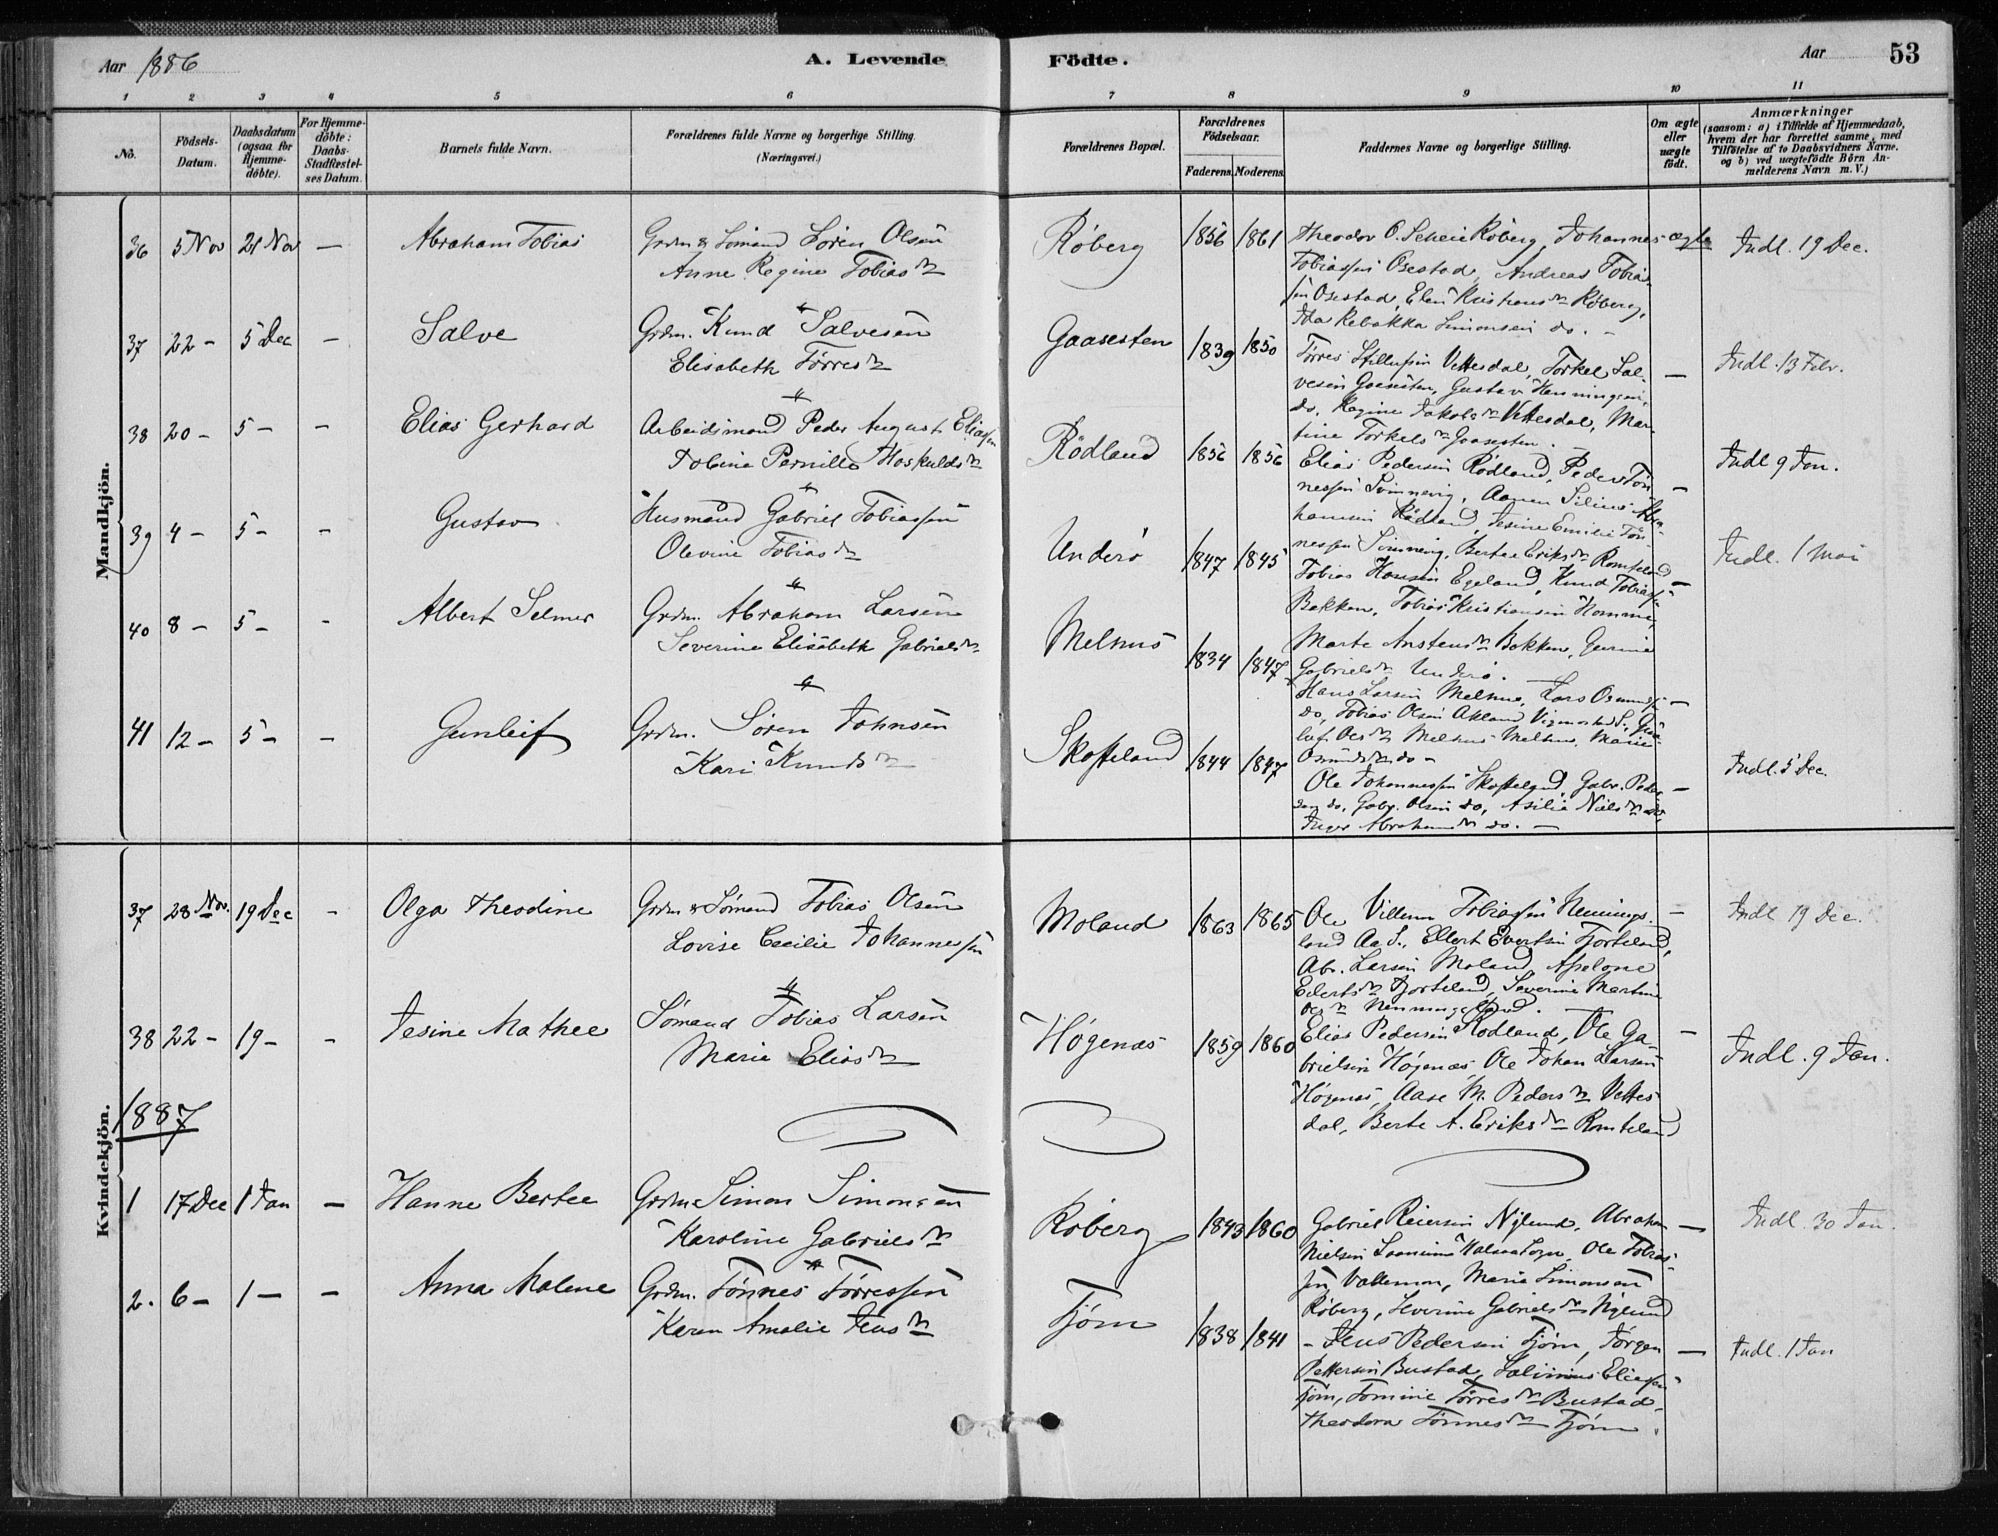 Aar 1886 A. Levende Födte. Aar 53
1 2 3 4 5 6 7 8 9 10 11
No.
Födsels-Datum.
Daabsdatum (ogsaa for Hjemme-döbte).
For Hjemme-döbte: Daabs-Stadfæstel-ses Datum.
Barnets fulde Navn.
Forældrenes fulde Navne og borgerlige Stilling.
(Næringsvei.)
Forældrenes Bopæl.
Forældrenes Födselsaar.
Faderens. Moderens.
Faddernes Navne og borgerlige Stilling.
Om ægte eller uægte födt.
Anmærkninger
(saasom: a) i Tilfælde af Hjemmedaab,
hvem der har forrettet samme, med
Tilföielse af to Daabsvidners Navne.
og b) ved uægtefödte Börn An-
melderens Navn m. V.)
Mandkjön.
36 5 Nov 21 Nov — Abraham Tobias Grdm & Sömand Sören Olsen
Anne Regine Tobiasdr
Röberg 1856 1861
Theodor O. Scheie Röberg, Johannes
Tobiassen Osestad, Andreas Tobias-
sen Osestad, Elen Kristensdr Röberg,
Ida Rebekka Simonsen do. —
ægte Indl. 19 Dec.
37 22 — 5 Dec — Salve Grdm. Knud Salvesen
Elisabeth Törresdr
Gaasesten 1839 1850
Törres Vettesdal, Torkel Sal-
vesen Gaasesten, Gustav Henningsen
do, Regine Jakobsdr Vettesdal, Mar-
tine Torkelsdr Gaasesten. —
— Indl. 13 Febr.
38 20 — 5 — — Elias Gerhard Arbeidsmand Peder August Eliassen
Tobine Pernille Hoskuldsdr
Rödland 1856 1856
Elias Pedersen Rödland, Peder Tön-
nessen Svinnevig, Aanen Silius Abra-
hamsen Rödland, Jesine Emilie Tön-
nessen Svinnevig, Berte Eriksdr Romteland
— Indl 9 Jan.
39 4 — 5 — — Gustav Husmand Gabriel Tobiassen
Olevine Tobiasdr
Underö 1847 1845
Tobias Hansen Egeland, Knud Tobiassen
Bakken, Tobias Kristiansen Homme,
Marte Anstensdr Bakken, Gurine
Gabrielsdr Underö.
— Indl. 1 Mai
40 8 — 5 — - Albert Selmer Grdm. Abraham Larsen
Severine Elisabeth Gabrielsdr
Melhus 1834 1847
Hans Larsen Melhus, Lars Osmundsen
do, Tobias Olsen Akland Vigmostad S.,
Olsdr Melhus, Marie
Osmundsdr do —
—
41 12 — 5 — — Gunleif Grdm. Sören Johnsen
Kari Knudsdr
Skofteland 1844 1847
Ole Johannessen Skofteland, Gabr. Peder-
sen do, Gabr. Olsen do, Asilie Nielsdr do,
Inger Abrahamsdr do. —
— Indl. 5 Dec.
Kvindekjön.
37 28 Nov. 19 Dec - Olga Theodine Grdm & Sömand Tobias Olsen
Lovise Cecilie Johannessen
Moland 1863 1865
Ole Villum Tobiassen Nennings-
land Aa S., Ellert Evertsen Fjorteland,
Abr. Larsen Moland, Apelone
Edertsdr Fjorteland, Severine Martine
Olsdr Nenningsland.
— Indl 19 Dec.
38 22 — 19 — - Jesine Mathee Sömand Tobias Larsen
Marie Eliasdr
Högenæs 1859 1860
Elias Pedersen Rödland, Ole Ga-
brielsen Högenæs, Ole Johan Larsen
Högenæs, Aase M. Pedersdr Vettes-
dal, Berte A. Eriksdr Romteland
— Indl. 9 Jan.
1887
1 17 Dec 1 Jan — Hanne Bertee Grdm Simon Simonsen
Karoline Gabrielsdr
Röberg 1843 1860
Gabriel Reiersen Nglund, Abraham
Nielsen Halsaa Sogn, Ole Tobias-
sen Valtemon, Marie Simonsen
Röberg, Severine Gabrielsdr Nglund
— Indl. 30 Jan.
2. 6 — 1 — — Anna Malene Grdm. Tönnes Törressen
Karen Amalie Jensdr
Fjöm 1838 1841
- Jens Pedersen Fjöm, Jörgen
Pettersen Bustad, Salvinius Eliassen
Fjöm, Tomine Törresdr Bustad,
Theodora Tönnesdr Fjöm.
— Indl. 1 Jan